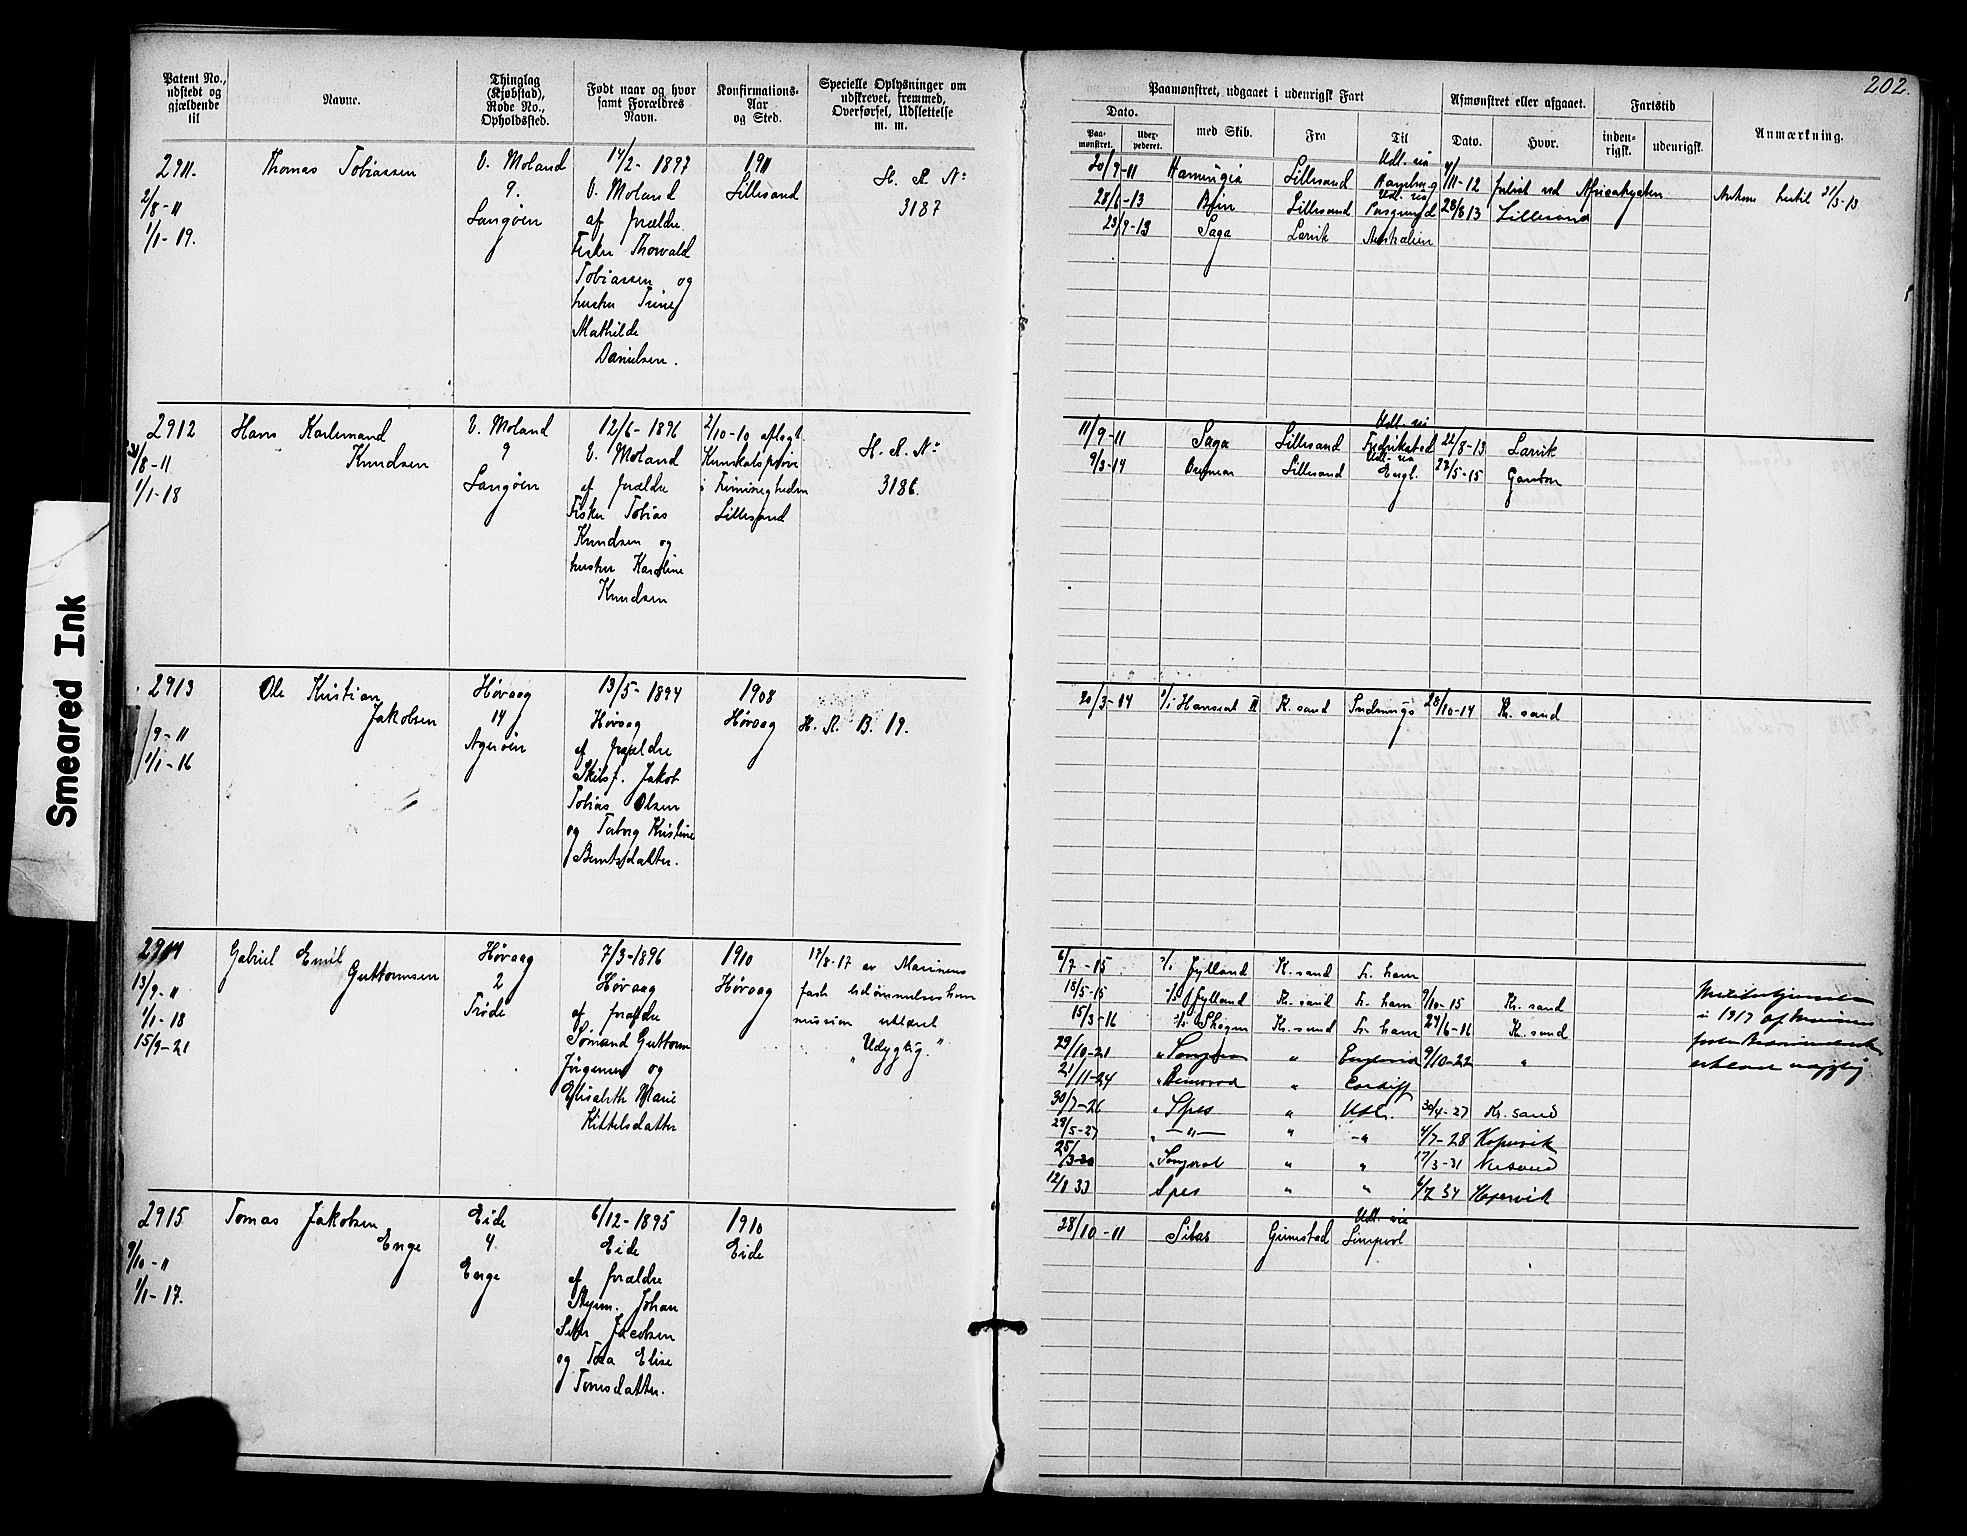 202.
Patent No., udstedt og gjældende til
Navne.
Thinglag (Kjøbstad), Rode No., Opholdssted.
Født naar og hvor samt Forældres Navn.
Konfirmations-Aar og Sted.
Specielle Oplysninger om udskrevet, fremmed, Overførsel, Udslettelse m. m.
Paamønstret, udgaaet i udenrigsk Fart
Dato.
Paa-mønstret.
med Skib.
Fra
Til
Afmønstret eller afgaaet.
Dato.
Hvor.
Fartstid
inden-rigsk.
udenrigsk.
Anmærkning.
2911.
2/8-11
1/1-19.
Thomas Tobiassen
V. Moland
9.
Langøen
14/2-1897
V. Moland
af forældre
Fisker Thorvald
Tobiassen og
hustru Trine
Mathilde
Danielsen.
1911
Lillesand
H. R. No
3187
20/9-11 Lillesand Udl. via
28/6-13 Lillesand Udl. via 28/8 13 Lillesand
23/9-13 Saga Larvik Australien
2912
/8-11
1/1-18
Hans Karlemand
Knudsen
V. Moland
9
Langøen
12/6-1896
V. Moland
af forældre
Fisker Tobias
Knudsen og
hustru Karoline
Knudsen
2/10-10 aflagt
Kundskabsprøve
i Frimenigheden
Lillesand
H. R. No
3186.
11/9-11 Saga Lillesand Udl. via Fredrikstad 22/8-13 Larvik
9/3-14 Lillesand Udl. via Engl. 22/5-15
2913
/9-11
1/1-16
Ole Kristian
Jakobsen
Høvaag
14
Agerøen
13/5-1894
Høvaag
af forældre
Skibsf. Jakob
Tobias Olsen
og Torborg Kristine
Berntsdatter.
1908
Høvaag
H. R. B. 19.
20/3-14 Hanseat II K. sand 28/10-14 K. sand
2914
13/9-11
1/1-18
15/9-21
Gabriel Emil
Guttormsen
Høvaag
2
Trøde
7/3-1896
Høvaag
af forældre
Sømand Guttorm
Jørgensen og
Elisabeth Marie
Kittelsdatter
1910
Høvaag
17/8-17 av Marinens
faste bedømmelseskom
mission erklæret
"Udygtig."
6/7-15 Jylland K. sand Fr. havn
18/5-15 Jylland Kr. sand Fr. havn 9/10-15 Kr. sand
15/3-16 Skogen Kr. sand Fr. havn 24/6-16 K. sand
29/10-21 " England 9/10-22 "
21/11-24 " Cardiff
30/7-26 " Spes " Udl. 30/4-27 Kr. sand
28/5-27 " -"- " -" 4/7-28 Kopervik
25/3-30 " " " 17/3-31
12/8 33 Spes " " 6/7 34 Kopervik
2915
9/10-11
1/1-17.
Tomas Jakobsen
Enge
Eide
4
Enge
6/12-1895
Eide
af forældre
Styrm. Johan
Jacobsen
og Elise
Tomsdatter.
1910
Eide
28/10-11 Grimstad Udl. via
Smeared Ink